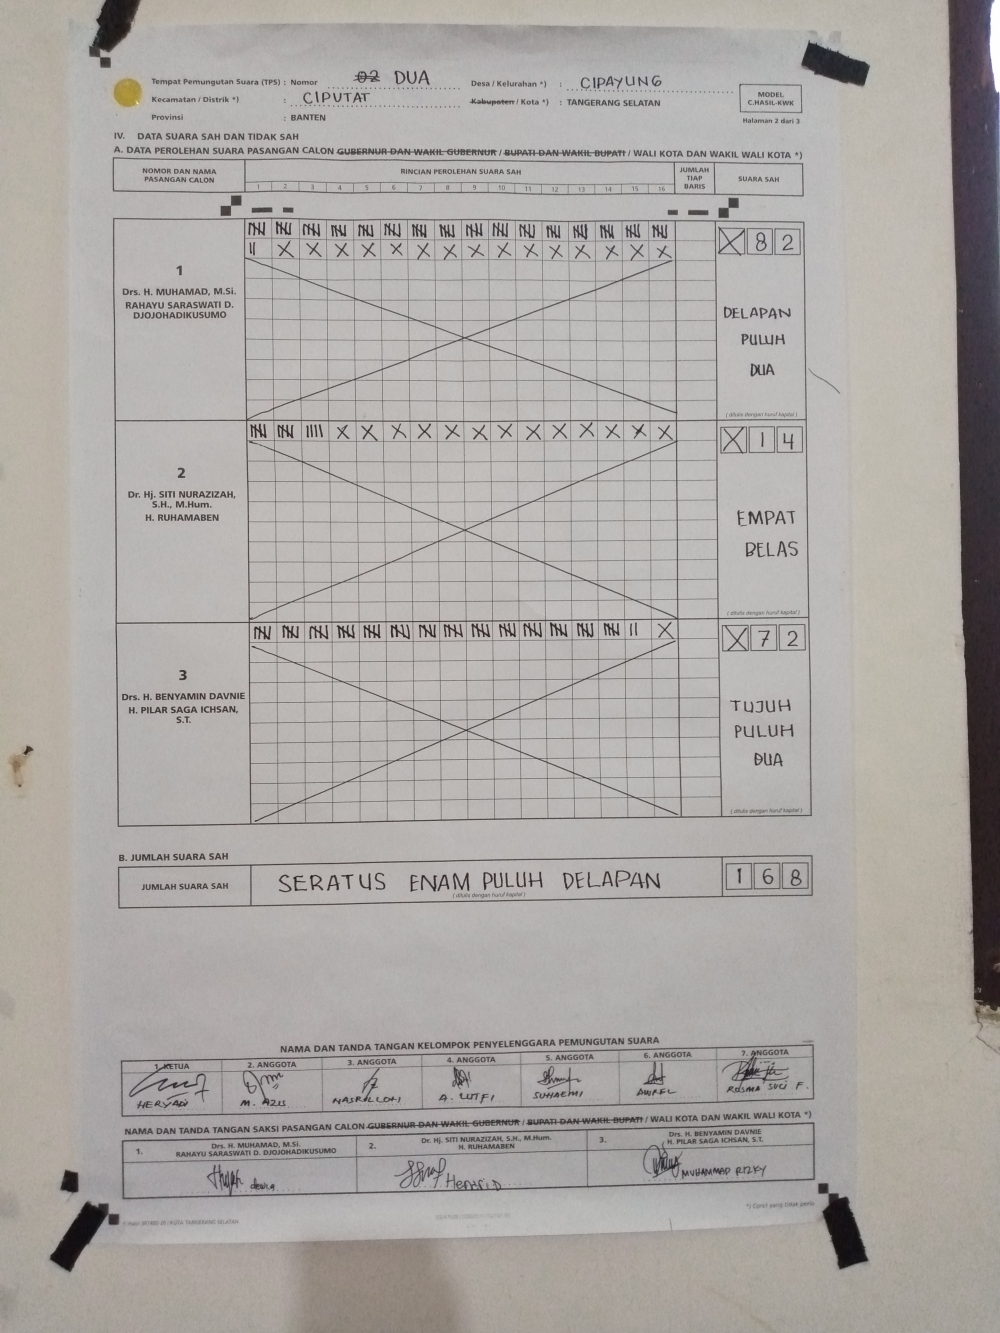 Tempat Pemungutan Suara (TPS) : Nomor 02 DUA Desa / Kelurahan *) : CIPAYUNG
Kecamatan / Distrik *) : CIPUTAT Kabupaten / Kota *) : TANGERANG SELATAN
Provinsi : BANTEN
MODEL
C.HASIL-KWK
Halaman 2 dari 3
IV. DATA SUARA SAH DAN TIDAK SAH
A. DATA PEROLEHAN SUARA PASANGAN CALON GUBERNUR DAN WAKIL GUBERNUR / BUPATI DAN WAKIL BUPATI / WALI KOTA DAN WAKIL WALI KOTA *)
NOMOR DAN NAMA
PASANGAN CALON
RINCIAN PEROLEHAN SUARA SAH
1 2 3 4 5 6 7 8 9 10 11 12 13 14 15 16
JUMLAH
TIAP
BARIS
SUARA SAH
1
Drs. H. MUHAMAD, M.Si.
RAHAYU SARASWATI D.
DJOJOHADIKUSUMO
X 8 2
DELAPAN
PULUH
DUA
( ditulis dengan huruf kapital )
2
Dr. Hj. SITI NURAZIZAH,
S.H., M.Hum.
H. RUHAMABEN
X 1 4
EMPAT
BELAS
( ditulis dengan huruf kapital )
3
Drs. H. BENYAMIN DAVNIE
H. PILAR SAGA ICHSAN,
S.T.
X 7 2
TUJUH
PULUH
DUA
( ditulis dengan huruf kapital )
B. JUMLAH SUARA SAH
JUMLAH SUARA SAH SERATUS ENAM PULUH DELAPAN 1 6 8
( ditulis dengan huruf kapital )
NAMA DAN TANDA TANGAN KELOMPOK PENYELENGGARA PEMUNGUTAN SUARA
1. KETUA 2. ANGGOTA 3. ANGGOTA 4. ANGGOTA 5. ANGGOTA 6. ANGGOTA 7. ANGGOTA
HERYADI M. AZIS NASRULLOH A. LUTFI SUHAEMI AWREL ROSMA SUCI F.
NAMA DAN TANDA TANGAN SAKSI PASANGAN CALON GUBERNUR DAN WAKIL GUBERNUR / BUPATI DAN WAKIL BUPATI / WALI KOTA DAN WAKIL WALI KOTA *)
1. Drs. H. MUHAMAD, M.Si.
RAHAYU SARASWATI D. DJOJOHADIKUSUMO
2. Dr. Hj. SITI NURAZIZAH, S.H., M.Hum.
H. RUHAMABEN
3. Drs. H. BENYAMIN DAVNIE
H. PILAR SAGA ICHSAN, S.T.
MUHAMMAD RIZKY
*) Coret yang tidak perlu
KOTA TANGERANG SELATAN